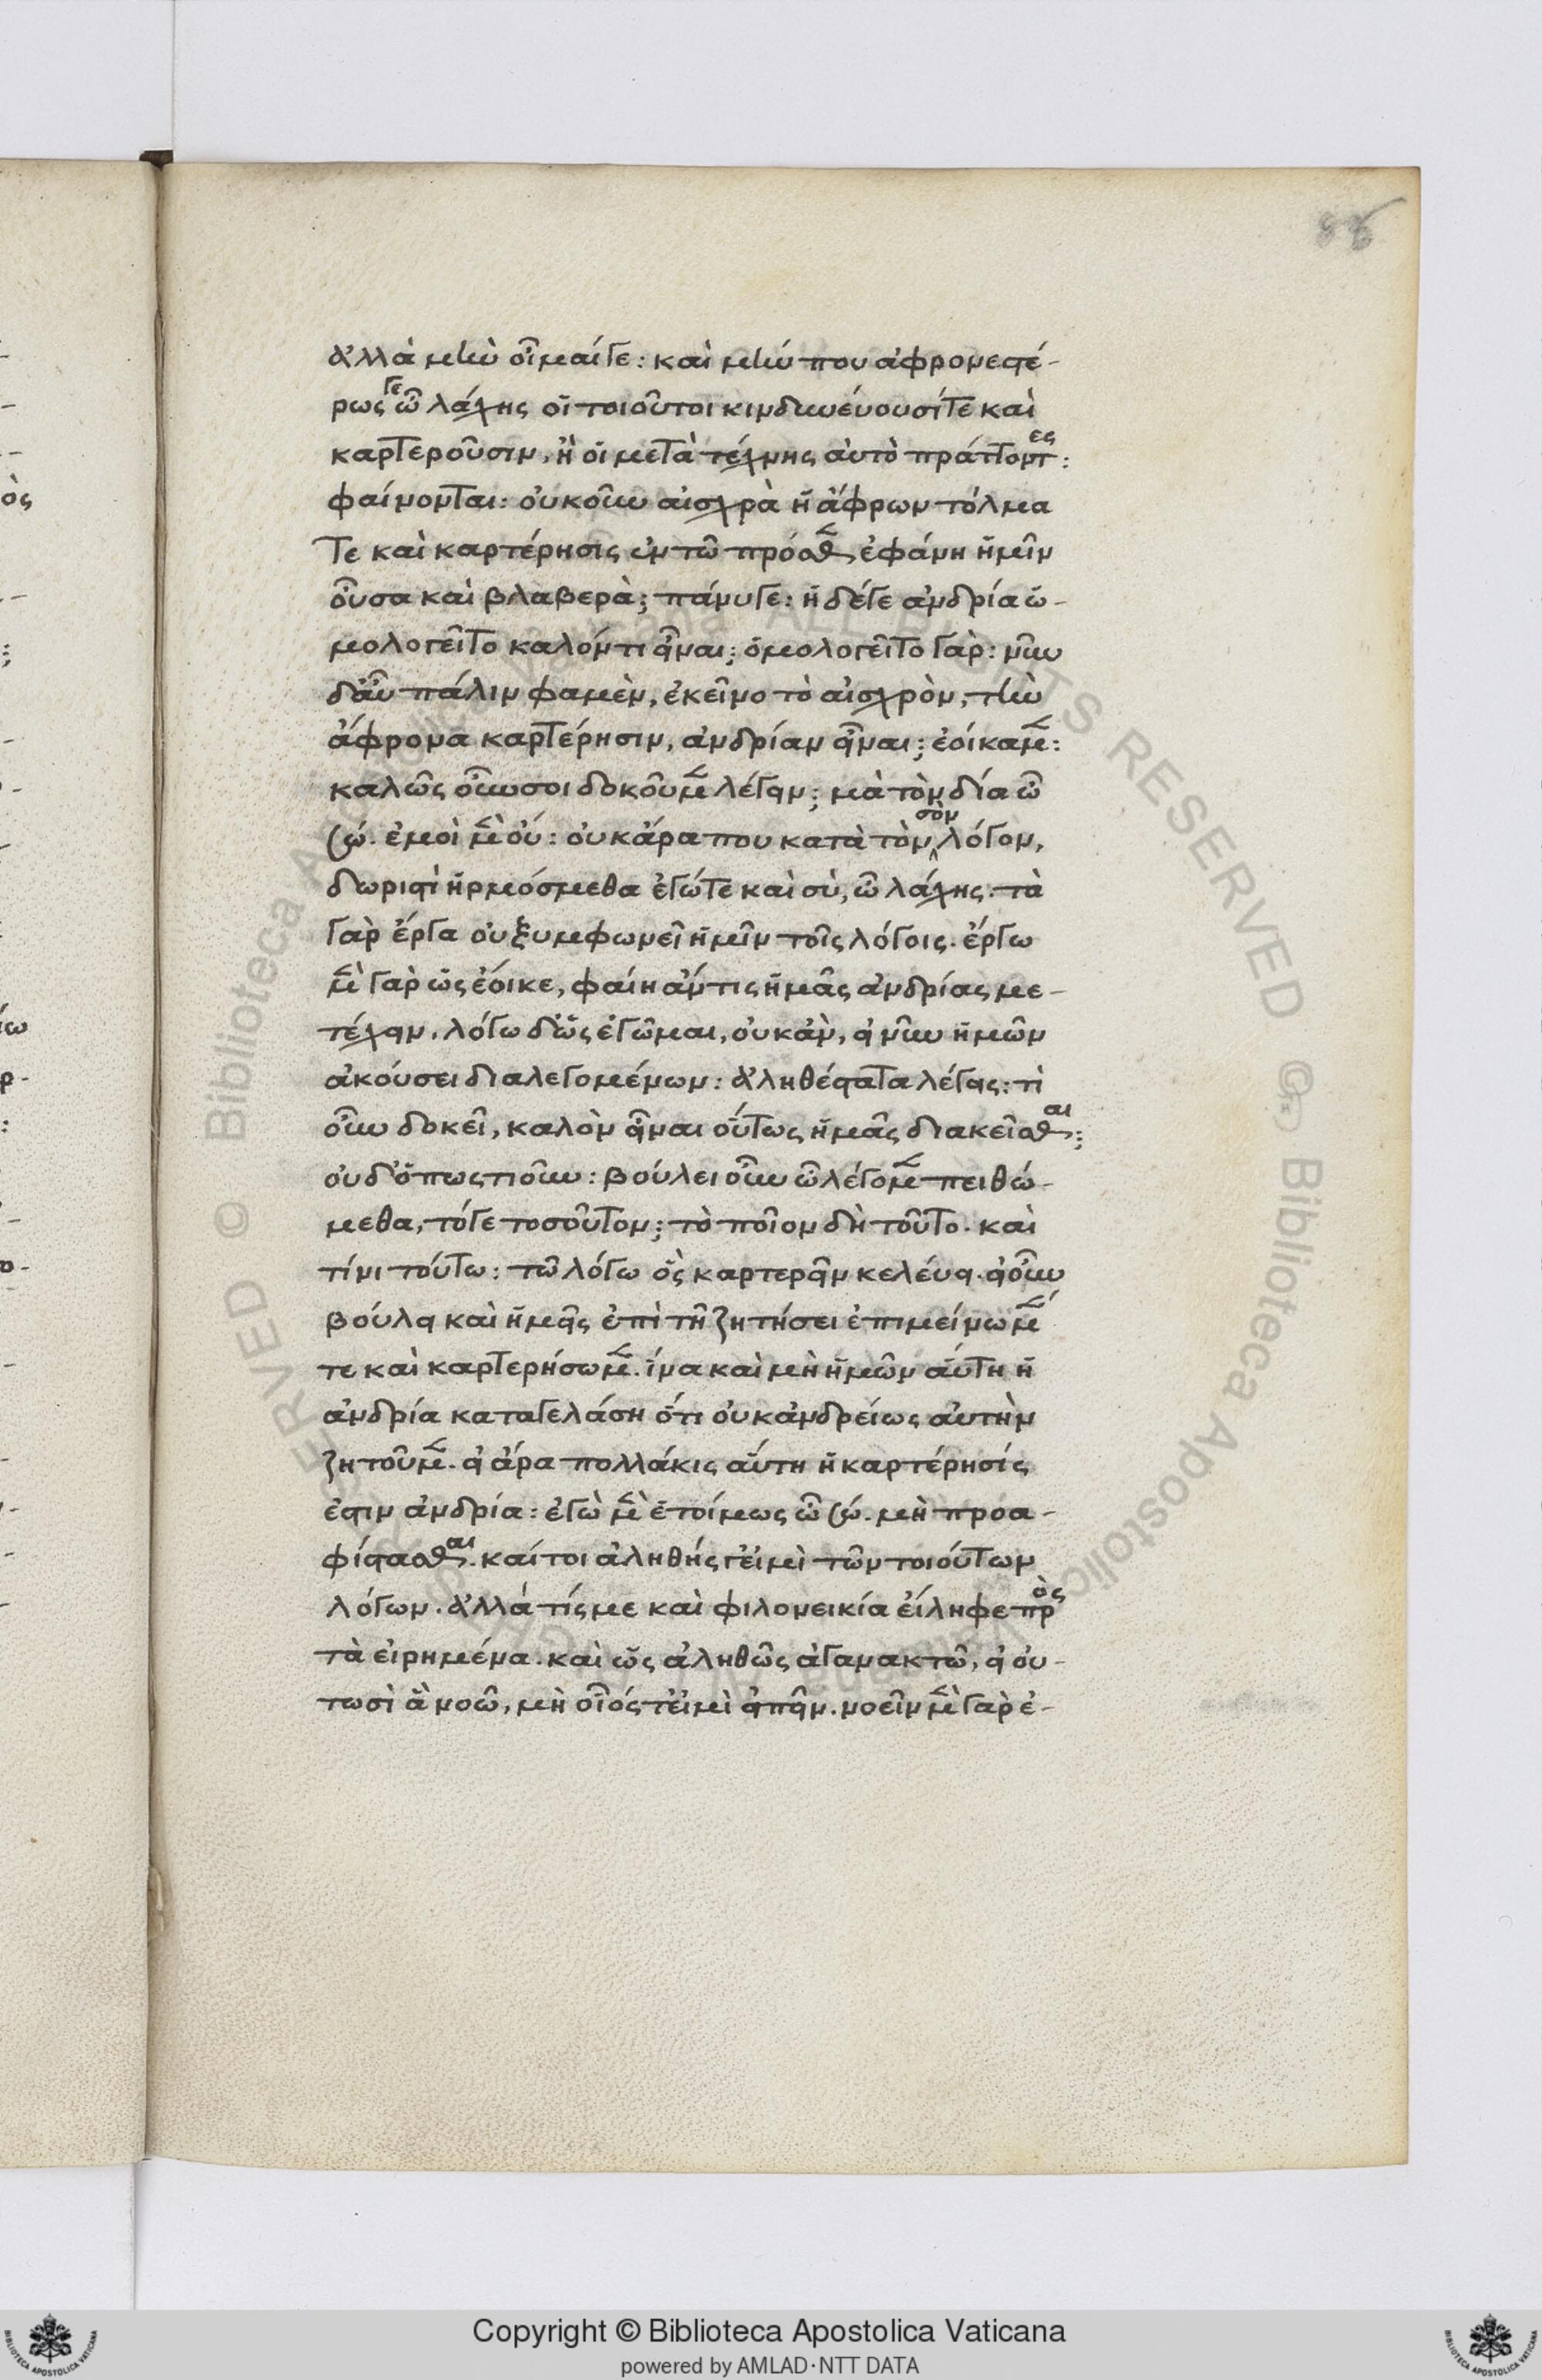 88
ἀλλὰ μὴν οἶμαί γε: καὶ μήν που ἀφρονεστέ-
ρως γε ὦ λάχης οἱ τοιοῦτοι κινδυνεύουσί τε καὶ
καρτεροῦσιν, ἢ οἱ μετὰ τέχνης αὐτὸ πράττοντες:
φαίνονται: οὐκοῦν αἰσχρὰ ἡ ἄφρων τόλμα
τε καὶ καρτέρησις ἐν τῶ πρόσθεν ἐφάνη ἡμῖν
οὖσα καὶ βλαβερὰ; πάνυ γε: ἡ δέ γε ἀνδρία ὡ-
μολογεῖτο καλόν τι εἶναι; ὁμολογεῖτο γὰρ: νῦν
δ' αὖ πάλιν φαμὲν, ἐκεῖνο τὸ αἰσχρὸν, τὴν
ἄφρονα καρτέρησιν, ἀνδρίαν εἶναι; ἐοίκαμεν:
καλῶς οὖν σοι δοκοῦμεν λέγειν; μὰ τὸν δία ὦ
σώ. ἐμοὶ μὲν οὐ: οὐκ ἄρα που κατὰ τὸν σὸν λόγον,
δωριστὶ ἡρμόσμεθα ἐγώ τε καὶ σὺ, ὦ λάχης. τὰ
γὰρ ἔργα οὐ ξυμφωνεῖ ἡμῖν τοῖς λόγοις. ἔργω
μὲν γὰρ ὡς ἔοικε, φαίη ἄν τις ἡμᾶς ἀνδρίας με-
τέχειν. λόγω δ' ὡς ἐγῶμαι, οὐκ ἂν, εἰ νῦν ἡμῶν
ἀκούσει διαλεγομένων: ἀληθέστατα λέγεις: τὶ
οὖν δοκεῖ, καλὸν εἶναι οὕτως ἡμᾶς διακεῖσθαι;
οὐδ' ὁπωστιοῦν: βούλει οὖν ὧ λέγομεν πειθώ-
μεθα, τό γε τοσοῦτον; τὸ ποῖον δὴ τοῦτο. καὶ
τίνι τούτω: τῶ λόγω ὃς καρτερεῖν κελέυει. εἰ οὖν
βούλει καὶ ἡμεῖς ἐπὶ τῆ ζητήσει ἐπιμείνωμέν
τε καὶ καρτερήσωμεν. ἵνα καὶ μὴ ἡμῶν αὕτη ἡ
ἀνδρία καταγελάση ὅτι οὐκ ἀνδρείως αὐτὴν
ζητοῦμεν. εἰ ἄρα πολλάκις αὕτη ἡ καρτέρησίς
ἐστιν ἀνδρία: ἐγὼ μὲν ἑτοίμως ὦ σώ. μὴ προα-
φίστασθαι. καίτοι ἀληθής γ' εἰμὶ τῶν τοιούτων
λόγων. ἀλλά τίς με καὶ φιλονεικία εἴληφε πρὸς
τὰ εἰρημένα. καὶ ὡς ἀληθῶς ἀγανακτῶ, εἰ οὑ-
τωσὶ ἃ νοῶ, μὴ οἷός τ' εἰμὶ εἰπεῖν. νοεῖν μὲν γὰρ ἐ-
Copyright © Biblioteca Apostolica Vaticana
powered by AMLAD·NTT DATA